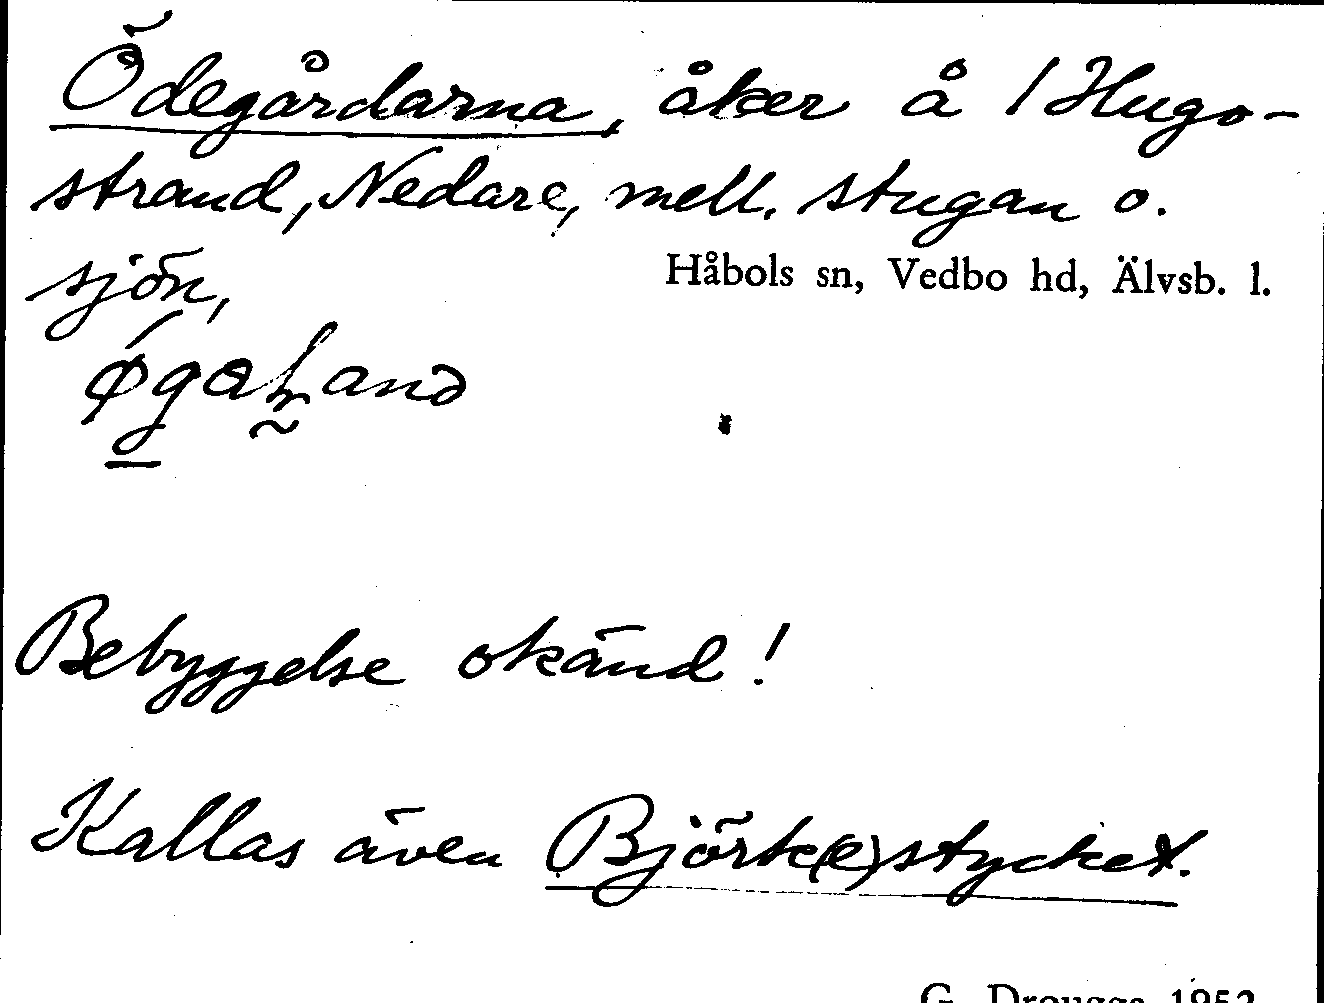 Ödegårdarna, åker å 1 Hugo-
strand, Nedare, mell. stugan o.
sjön,
Håbols sn, Vedbo hd, Älvsb. l.
Bebyggelse okänd!
Kallas även Björk(e)stycket.
G. Drougge 1952